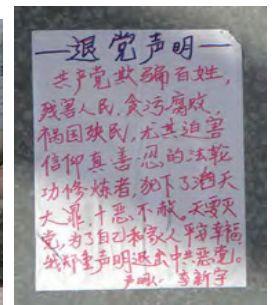 —退党声明—
共产党欺骗百姓，
残害人民，贪污腐败，
祸国殃民，尤其迫害
信仰真善忍的法轮
功修炼者，犯下了滔天
大罪，十恶不赦，天要灭
党，为了自己和家人平安幸福，
我郑重声明退出中共恶党。
声明人：李新宇